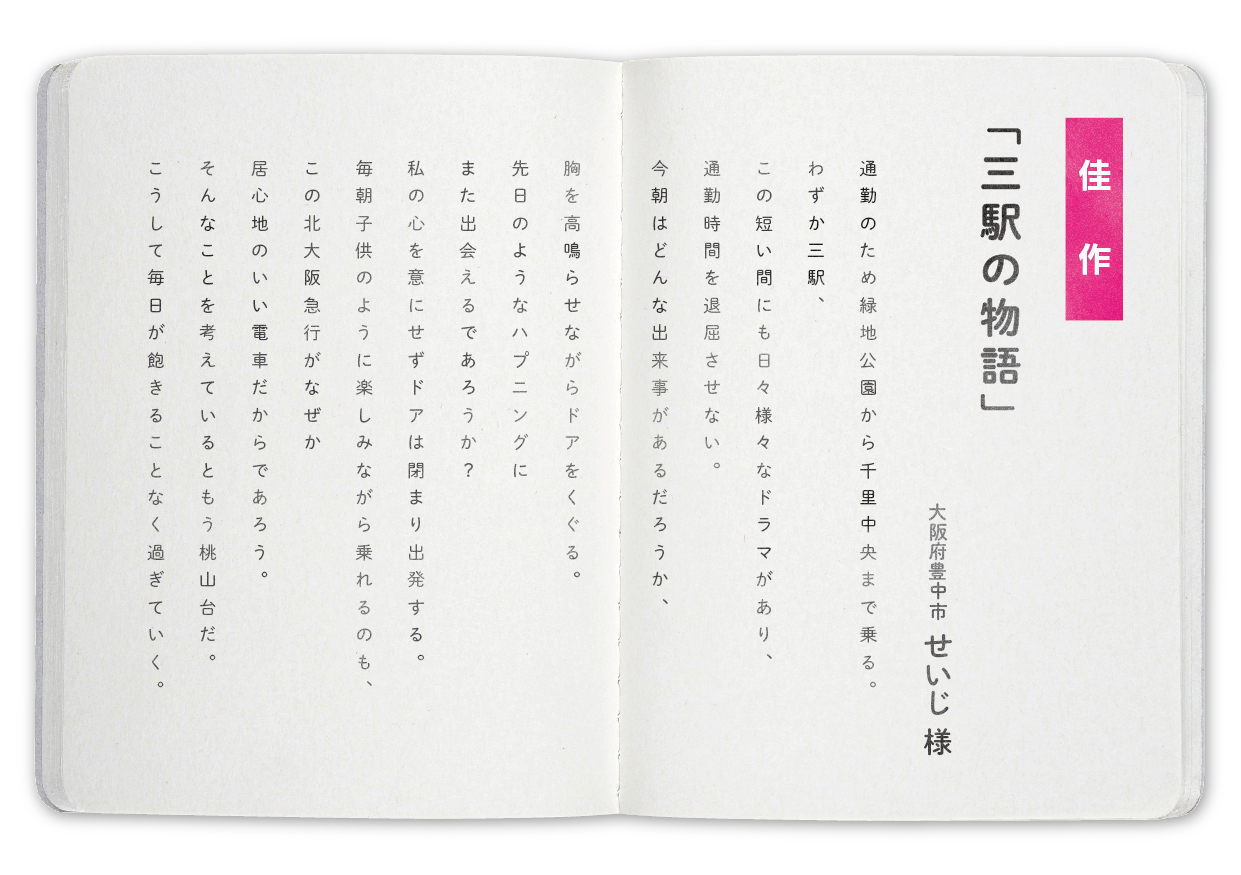 佳作
「三駅の物語」
大阪府豊中市 せいじ 様
通勤のため緑地公園から千里中央まで乗る。
わずか三駅、
この短い間にも日々様々なドラマがあり、
通勤時間を退屈させない。
今朝はどんな出来事があるだろうか、
胸を高鳴らせながらドアをくぐる。
先日のようなハプニングに
また出会えるであろうか？
私の心を意にせずドアは閉まり出発する。
毎朝子供のように楽しみながら乗れるのも、
この北大阪急行がなぜか
居心地のいい電車だからであろう。
そんなことを考えているともう桃山台だ。
こうして毎日が飽きることなく過ぎていく。